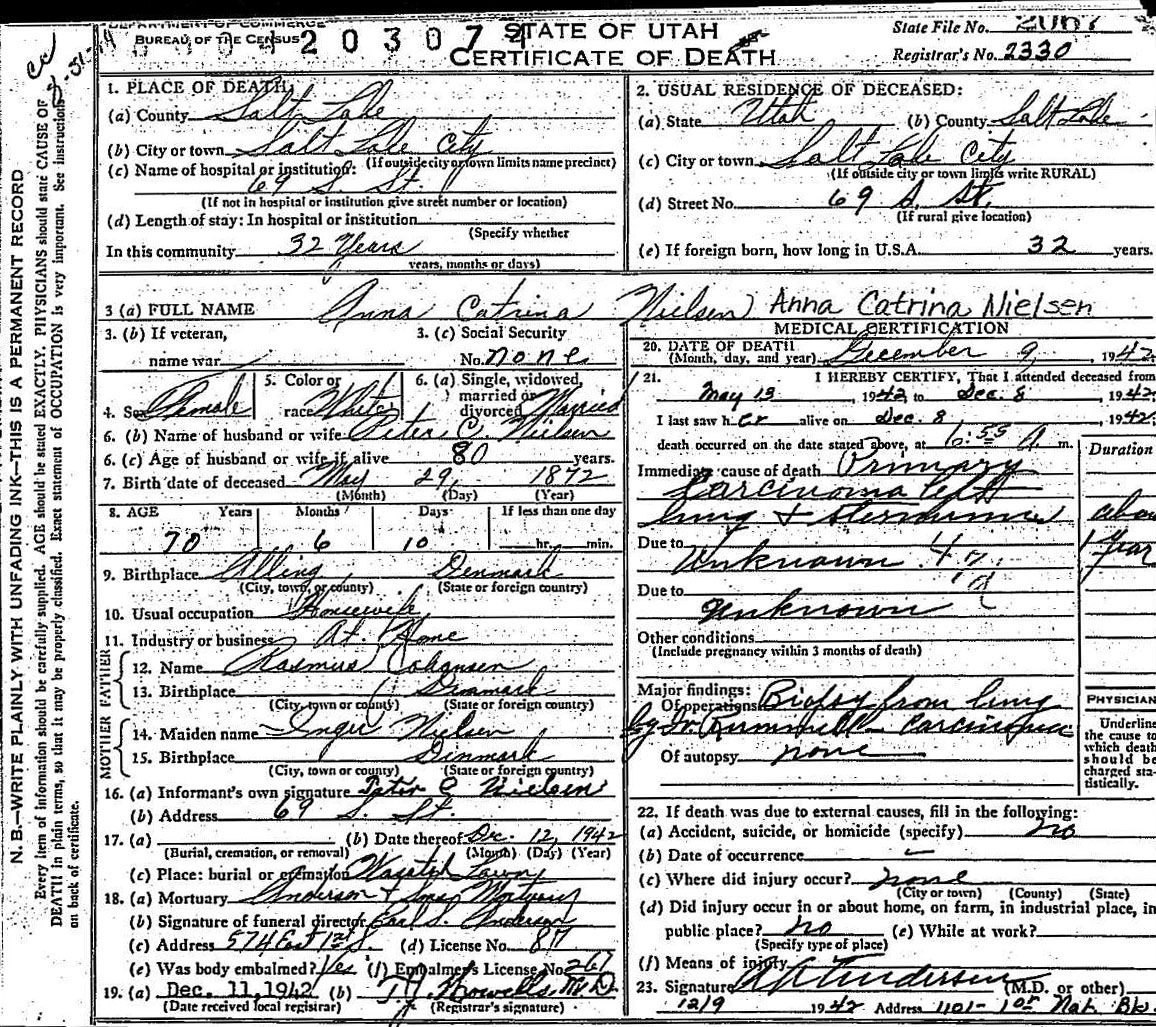 DEPARTMENT OF COMMERCE
BUREAU OF THE CENSUS
2 0 3 0 7
STATE OF UTAH
CERTIFICATE OF DEATH
State File No. 2067
Registrar's No. 2330
N. B.—WRITE PLAINLY WITH UNFADING INK—THIS IS A PERMANENT RECORD
Every item of information should be carefully supplied. AGE should be stated EXACTLY. PHYSICIANS should state CAUSE OF
DEATH in plain terms, so that it may be properly classified. Exact statement of OCCUPATION is very important. See instructions
on back of certificate.
1. PLACE OF DEATH:
(a) County Salt Lake
(b) City or town Salt Lake City
(If outside city or town limits name precinct)
(c) Name of hospital or institution:
69 S. St.
(If not in hospital or institution give street number or location)
(d) Length of stay: In hospital or institution
(Specify whether
In this community 32 Years
years, months or days)
2. USUAL RESIDENCE OF DECEASED:
(a) State Utah (b) County Salt Lake
(c) City or town Salt Lake City
(If outside city or town limits write RURAL)
(d) Street No. 69 S. St.
(If rural give location)
(e) If foreign born, how long in U.S.A. 32 years.
3 (a) FULL NAME Anna Catrina Nielsen Anna Catrina Nielsen
3. (b) If veteran, name war
3. (c) Social Security No. none
4. Sex Female
5. Color or race White
6. (a) Single, widowed, married or divorced Married
6. (b) Name of husband or wife Peter C. Nielsen
6. (c) Age of husband or wife if alive 80 years.
7. Birth date of deceased May 29, 1872
(Month) (Day) (Year)
8. AGE Years Months Days If less than one day
70 6 10 hr. min.
9. Birthplace Denmark
(City, town, or county) (State or foreign country)
10. Usual occupation Housewife
11. Industry or business At Home
FATHER
12. Name Rasmus Johansen
13. Birthplace Denmark
(City, town or county) (State or foreign country)
MOTHER
14. Maiden name Nielsen
15. Birthplace Denmark
(City, town or county) (State or foreign country)
16. (a) Informant's own signature Peter C Nielsen
(b) Address 69 S. St.
17. (a) (b) Date thereof Dec. 12, 1942
(Burial, cremation, or removal) (Month) (Day) (Year)
(c) Place: burial or cremation Wasatch Lawn
18. (a) Mortuary Anderson & Sons Mortuary
(b) Signature of funeral director Earl S. Anderson
(c) Address 574 East 1st S. (d) License No. 817
(e) Was body embalmed? Yes (f) Embalmer's License No. 267
19. (a) Dec. 11, 1942 (b) Howells M.D.
(Date received local registrar) (Registrar's signature)
MEDICAL CERTIFICATION
20. DATE OF DEATH
(Month, day, and year) December 9, 1942.
21. I HEREBY CERTIFY, That I attended deceased from
May 13, 1942, to Dec. 8, 1942.
I last saw her alive on Dec. 8, 1942.
death occurred on the date stated above, at 6:55 A m.
Duration
Immediate cause of death Primary
Carcinoma left
lung &
about
1 year
Due to
Unknown 47
Due to
Unknown
Other conditions
(Include pregnancy within 3 months of death)
Major findings:
Of operations Biopsy from lung
by Dr. Carcinoma
Of autopsy none
PHYSICIAN
Underline
the cause to
which death
should be
charged sta-
tistically.
22. If death was due to external causes, fill in the following:
(a) Accident, suicide, or homicide (specify) no
(b) Date of occurrence –
(c) Where did injury occur? none
(City or town) (County) (State)
(d) Did injury occur in or about home, on farm, in industrial place, in
public place? no (e) While at work?
(Specify type of place)
(f) Means of injury
23. Signature (M.D. or other)
12/9 1942 Address 1101- 1st Nat. Bk.